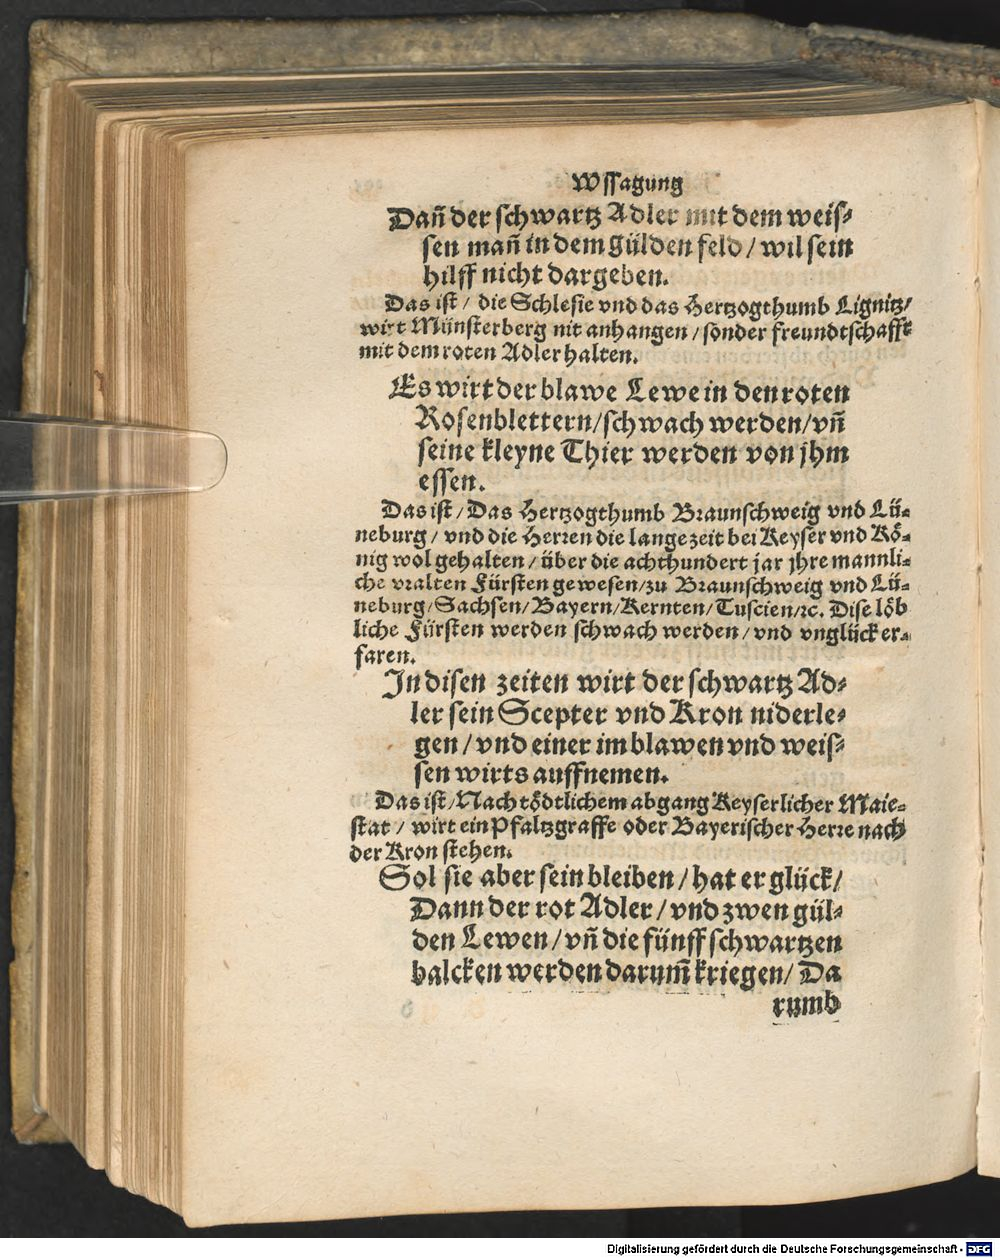 Wssagung
Dañ der schwartz Adler mit dem weis-
sen mañ in dem gülden feld / wil sein
hilff nicht dargeben.
Das ist / die Schlesie vnd das Hertzogthumb Lignitz/
wirt Münsterberg nit anhangen / sonder freundtschafft
mit dem roten Adler halten.
Es wirt der blawe Lewe in den roten
Rosenblettern/schwach werden/vñ
seine kleyne Thier werden von jhm
essen.
Das ist / Das Hertzogthumb Braunschweig vnd Lü-
neburg / vnd die Herren die lange zeit bei Keyser vnd Kö-
nig wol gehalten / über die achthundert jar jhre mannli-
che vralten Fürsten gewesen/zu Braunschweig vnd Lü-
neburg/Sachsen/Bayern/Kernten/Tuscien/ꝛc. Dise löb
liche Fürsten werden schwach werden / vnd vnglück er-
faren.
In disen zeiten wirt der schwartz Ad-
ler sein Scepter vnd Kron niderle-
gen / vnd einer im blawen vnd weis-
sen wirts auffnemen.
Das ist/Nach tödtlichem abgang Keyserlicher Maie-
stat / wirt ein Pfaltzgraffe oder Bayerischer Herre nach
der Kron stehen.
Sol sie aber sein bleiben / hat er glück/
Dann der rot Adler / vnd zwen gül-
den Lewen / vñ die fünff schwartzen
balcken werden darum̃ kriegen/ Da
rumb
Digitalisierung gefördert durch die Deutsche Forschungsgemeinschaft - DFG